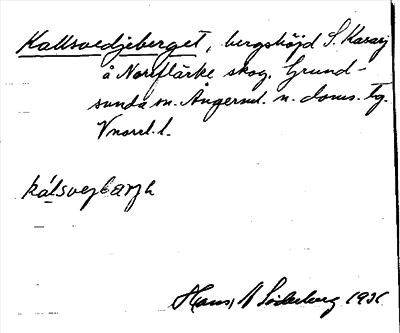 Kallsvedjeberget, bergshöjd S. Kasasj
å Norrflärke skog. Grund-
sunda sn. Ångerml. n. doms. tg.
Vnorrl. l.
kálsvejbarjh
Hans N Söderberg 1931